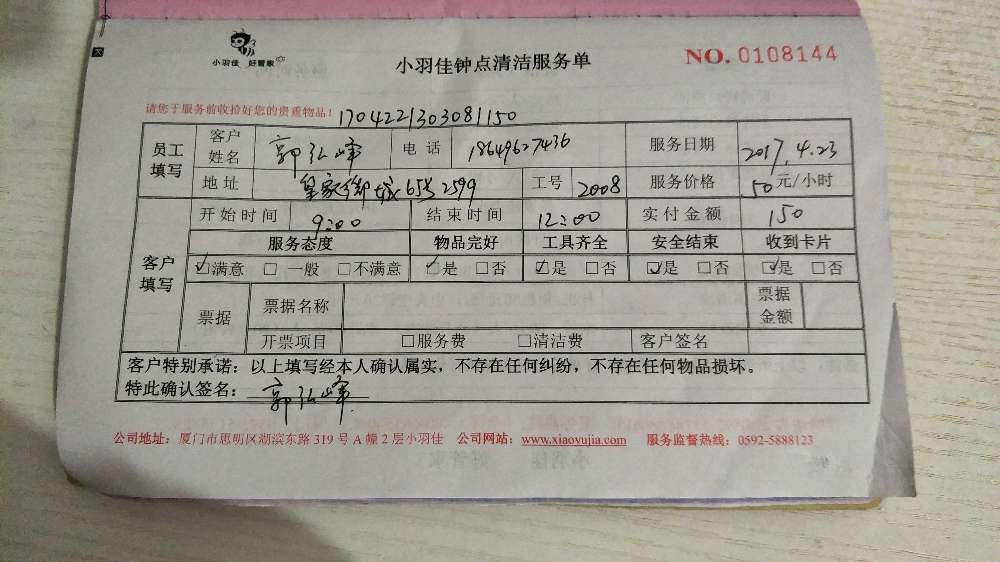 小羽佳 好管家
小羽佳钟点清洁服务单
NO. 0108144
请您于服务前收捡好您的贵重物品!
1704221303081150
员工填写 客户姓名 郭弘峰 电话 18649627436 服务日期 2017.4.23
地址 皇家御城 2599 工号 2008 服务价格 50元/小时
客户填写 开始时间 9:00 结束时间 12:00 实付金额 150
服务态度 物品完好 工具齐全 安全结束 收到卡片
☑满意 □一般 □不满意 ☑是 □否 ☑是 □否 ☑是 □否 ☑是 □否
票据 票据名称 票据金额
开票项目 □服务费 □清洁费 客户签名
客户特别承诺:以上填写经本人确认属实,不存在任何纠纷,不存在任何物品损坏。
特此确认签名: 郭弘峰
公司地址:厦门市思明区湖滨东路 319 号 A 幢 2 层小羽佳 公司网站:www.xiaoyujia.com 服务监督热线:0592-5888123